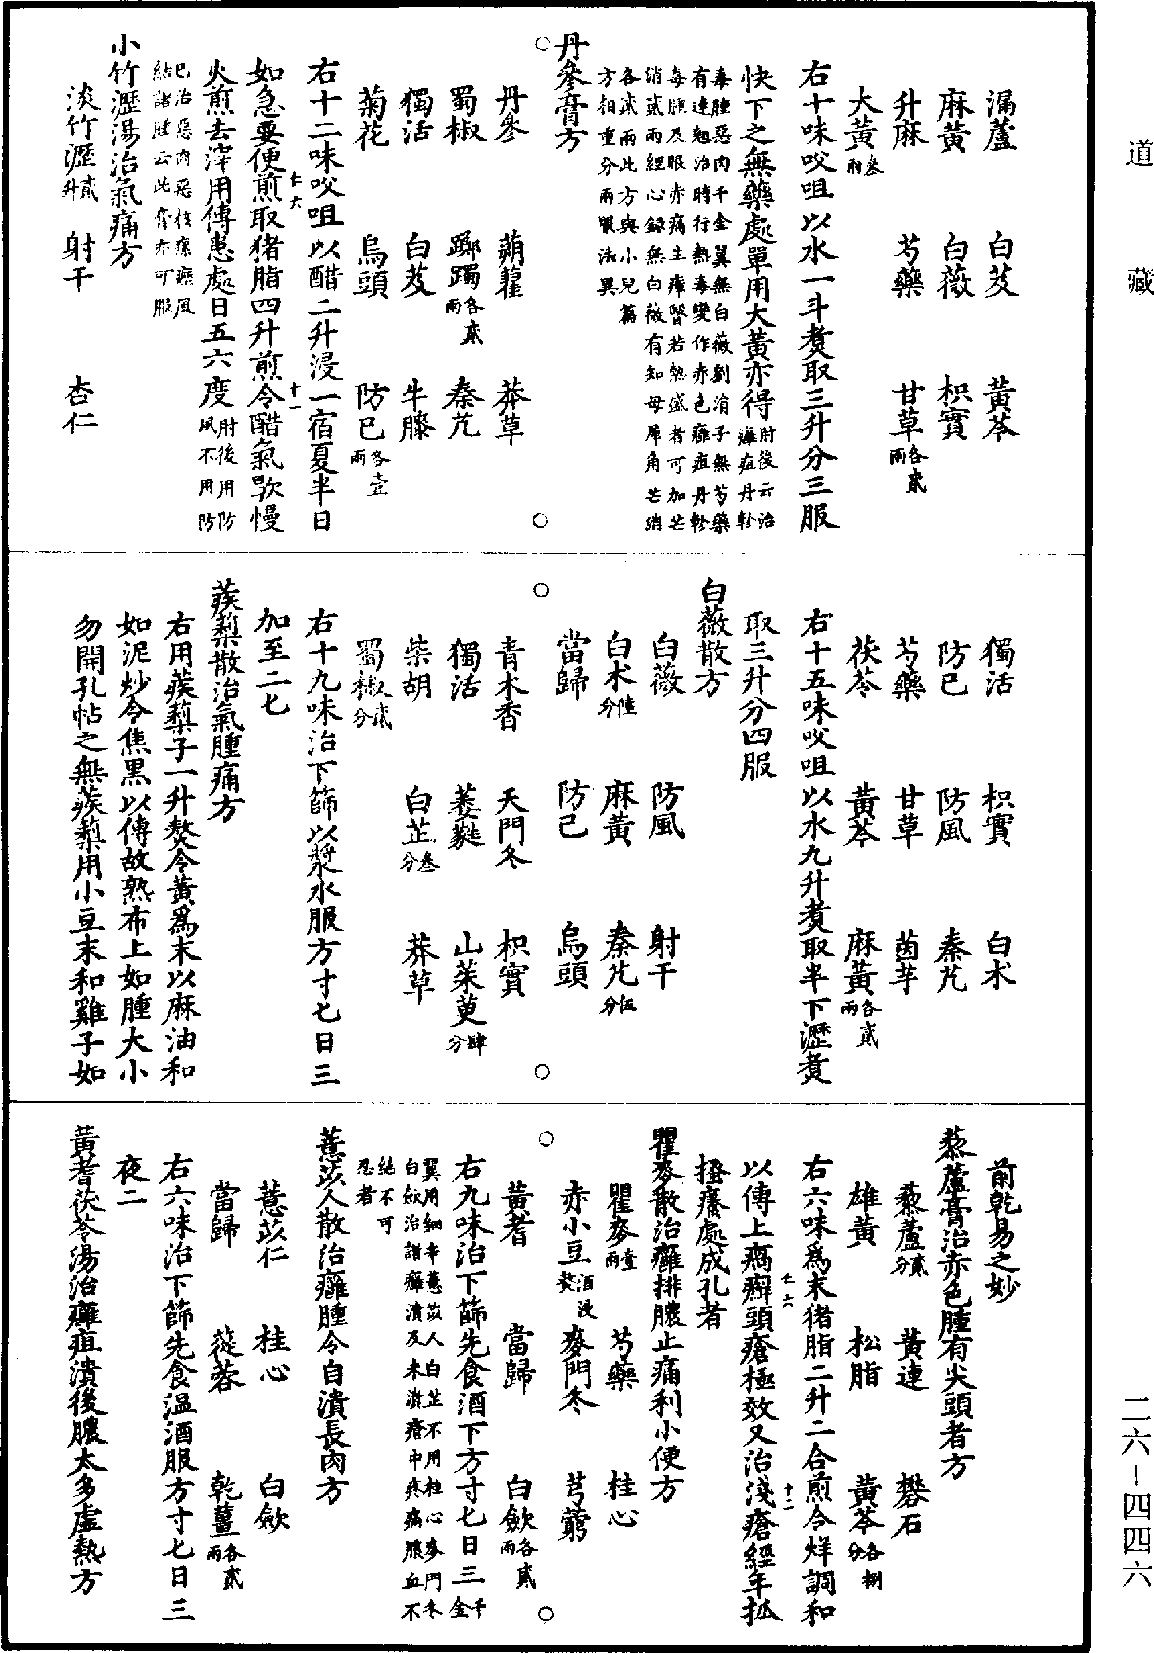 道藏
漏蘆 白芨 黃芩
麻黃 白薇 枳實
升麻 芍藥 甘草各貳兩
大黃叁兩
右十味㕮咀以水一斗煑取三升分三服
快下之無藥處單用大黃亦得肘後云治癰疽丹軫
毒腫惡肉千金翼無白薇劉涓子無芍藥
有連翹治時行熱毒變作赤色癰疽丹軫
毒腫及眼赤痛生瘴瞖若熱盛者可加芒
消貳兩經心録無白薇有知母犀角芒消
各貳兩此方與小兒篇
方相重分兩服法異
丹參膏方
丹參 蒴藋 莽草
蜀椒 躑躅各貳兩 秦艽
獨活 白芨 牛膝
菊花 烏頭 防已各壹兩
右十二味㕮咀以醋二升浸一宿夏半日
如急要便煎取猪脂四升煎令醋氣歇慢
火煎去滓用傅患處日五六度肘後用防風不用防
巳治惡肉惡核瘰癧風
結諸腫云此膏亦可服
小竹瀝湯治氣痛方
淡竹瀝貳升 射干 杏仁
獨活 枳實 白术
防已 防風 秦艽
芍藥 甘草 茵芋
茯苓 黃芩 麻黃各貳兩
右十五味㕮咀以水九升煑取半下瀝煑
取三升分四服
白薇散方
白薇 防風 射干
白术陸分 麻黃 秦艽伍分
當歸 防己 烏頭
青木香 天門冬 枳實
獨活 萎蕤 山茱萸肆分
柴胡 白芷叁分 莽草
蜀椒貳分
右十九味治下篩以漿水服方寸匕日三
加至二匕
蒺䔧散治氣腫痛方
右用蒺䔧子一升熬令黃爲末以麻油和
如泥炒令焦黑以傅故熟布上如腫大小
勿開孔帖之無蒺䔧用小豆末和雞子如
前乾易之妙
䔧蘆膏治赤色腫有尖頭者方
䔧蘆貳分 黃連 礬石
雄黃 松脂 黃芩各捌分
右六味爲末猪脂二升二合煎令烊調和
以傅上瘑癬頭瘡極效又治淺瘡經年抓
搔癢處成孔者
瞿麥散治癰排膿止痛利小便方
瞿麥壹兩 芍藥 桂心
赤小豆酒浸熬 麥門冬 芎藭
黃耆 當歸 白歛各貳兩
右九味治下篩先食酒下方寸匕日三千金
翼用細辛薏苡人白芷不用桂心麥門冬
白歛治諸癰潰及未潰瘡中疼痛膿血不
絕不可
忍者
薏苡人散治癰腫令自潰長肉方
薏苡仁 桂心 白歛
當歸 蓯蓉 乾薑各貳兩
右六味治下篩先食溫酒服方寸匕日三
夜二
黃耆茯苓湯治癰疽潰後膿太多虛熱方
二六－四四六
七六
十一
七六
十二